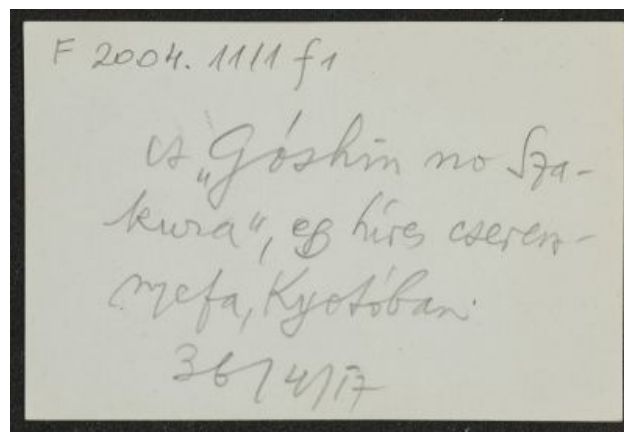 F 2004. 11/1 f1
a „Góshin no Sza-
kura", egy híres cseresz-
nyefa, Kyotóban.
36/4/17